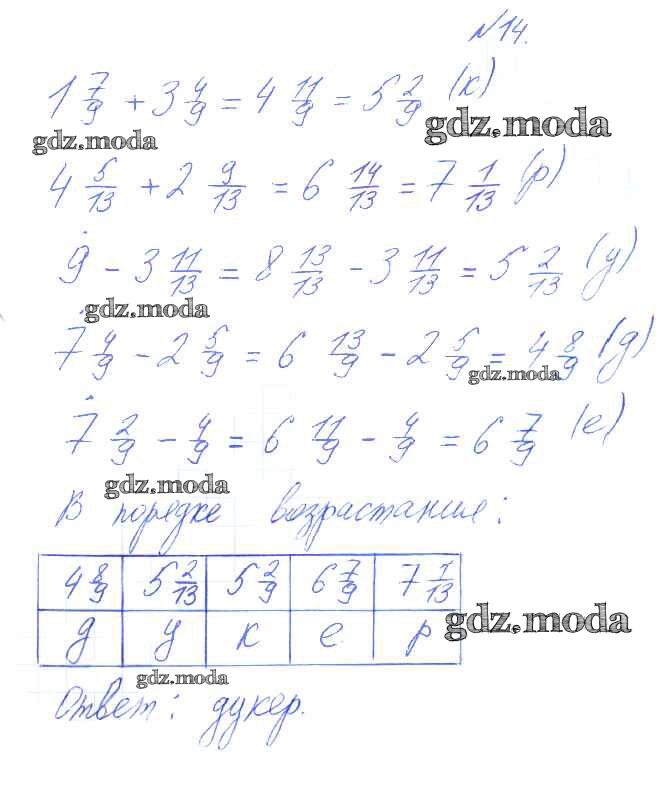 №14.
1 7/9 + 3 4/9 = 4 11/9 = 5 2/9 (к)
gdz.moda
gdz.moda
4 5/13 + 2 9/13 = 6 14/13 = 7 1/13 (р)
9 - 3 11/13 = 8 13/13 - 3 11/13 = 5 2/13 (у)
gdz.moda
7 4/9 - 2 5/9 = 6 13/9 - 2 5/9 = 4 8/9 (д)
gdz.moda
7 2/9 - 4/9 = 6 11/9 - 4/9 = 6 7/9 (е)
gdz.moda
В порядке возрастания:
4 8/9 5 2/13 5 2/9 6 7/9 7 1/13
д у к е р
gdz.moda
gdz.moda
Ответ: дукер.